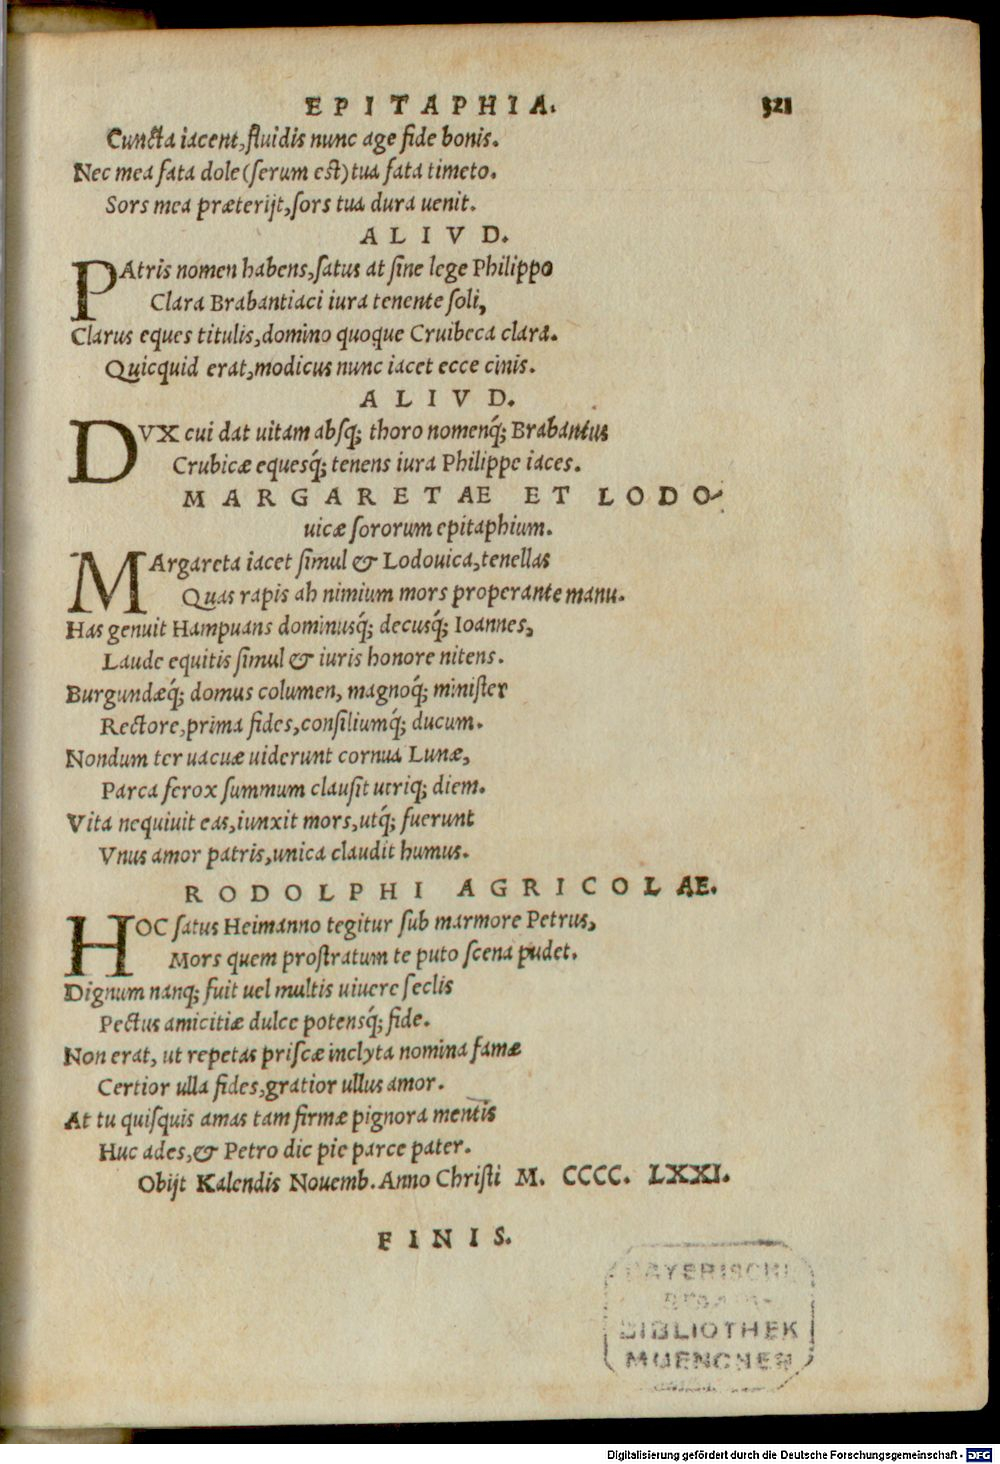 EPITAPHIA. 321
Cuncta iacent, fluidis nunc age fide bonis.
Nec mea fata dole (serum est) tua fata timeto.
Sors mea præterijt, sors tua dura uenit.
ALIVD.
PAtris nomen habens, satus at sine lege Philippo
Clara Brabantiaci iura tenente soli,
Clarus eques titulis, domino quoque Cruibeca clara.
Quicquid erat, modicus nunc iacet ecce cinis.
ALIVD.
DVX cui dat uitam absq; thoro nomenq́; Brabantus
Crubicæ equesq́; tenens iura Philippe iaces.
MARGARETAE ET LODO-
uicæ sororum epitaphium.
MArgareta iacet simul & Lodouica, tenellas
Quas rapis ah nimium mors properante manu.
Has genuit Hampuans dominusq́; decusq́; Ioannes,
Laude equitis simul & iuris honore nitens.
Burgundæq́; domus columen, magnoq́; minister
Rectore, prima fides, consiliumq́; ducum.
Nondum ter uacuæ uiderunt cornua Lunæ,
Parca ferox summum clausit utriq; diem.
Vita nequiuit eas, iunxit mors, utq́; fuerunt
Vnus amor patris, unica claudit humus.
RODOLPHI AGRICOLAE.
HOC satus Heimanno tegitur sub marmore Petrus,
Mors quem prostratum te puto scena pudet.
Dignum nanq; fuit uel multis uiuere seclis
Pectus amicitiæ dulce potensq́; fide.
Non erat, ut repetas priscæ inclyta nomina famæ
Certior ulla fides, gratior ullus amor.
At tu quisquis amas tam firmæ pignora mentis
Huc ades, & Petro dic pie parce pater.
Obijt Kalendis Nouemb. Anno Christi M. CCCC. LXXI.
FINIS.
BAYERISCHE
BIBLIOTHEK
MUENCHEN
Digitalisierung gefördert durch die Deutsche Forschungsgemeinschaft - DFG